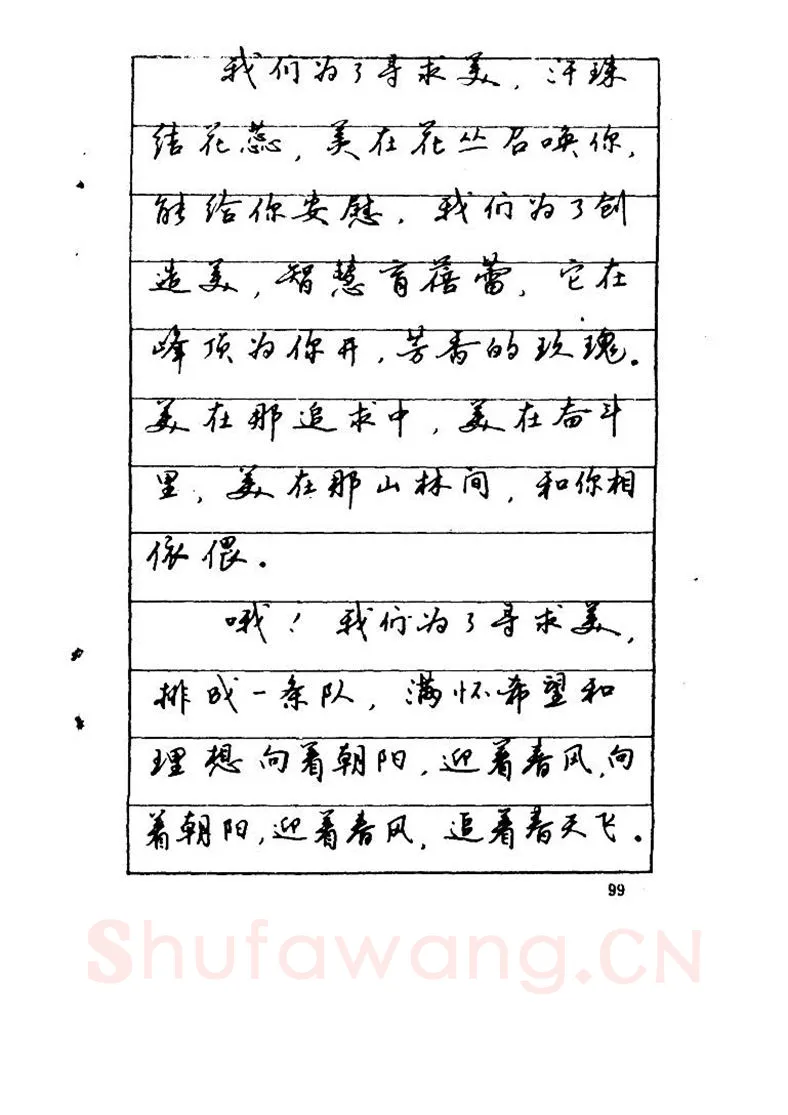 我们为了寻求美，汗珠
结花蕊，美在花丛召唤你，
能给你安慰．我们为了创
造美，智慧育蓓蕾，它在
峰顶为你开，芳香的玫瑰。
美在那追求中，美在奋斗
里，美在那山林间，和你相
依偎。
哦！我们为了寻求美，
排成一条队，满怀希望和
理想向着朝阳，迎着春风，向
着朝阳，迎着春风，追着春天飞。
99
Shufawang.CN